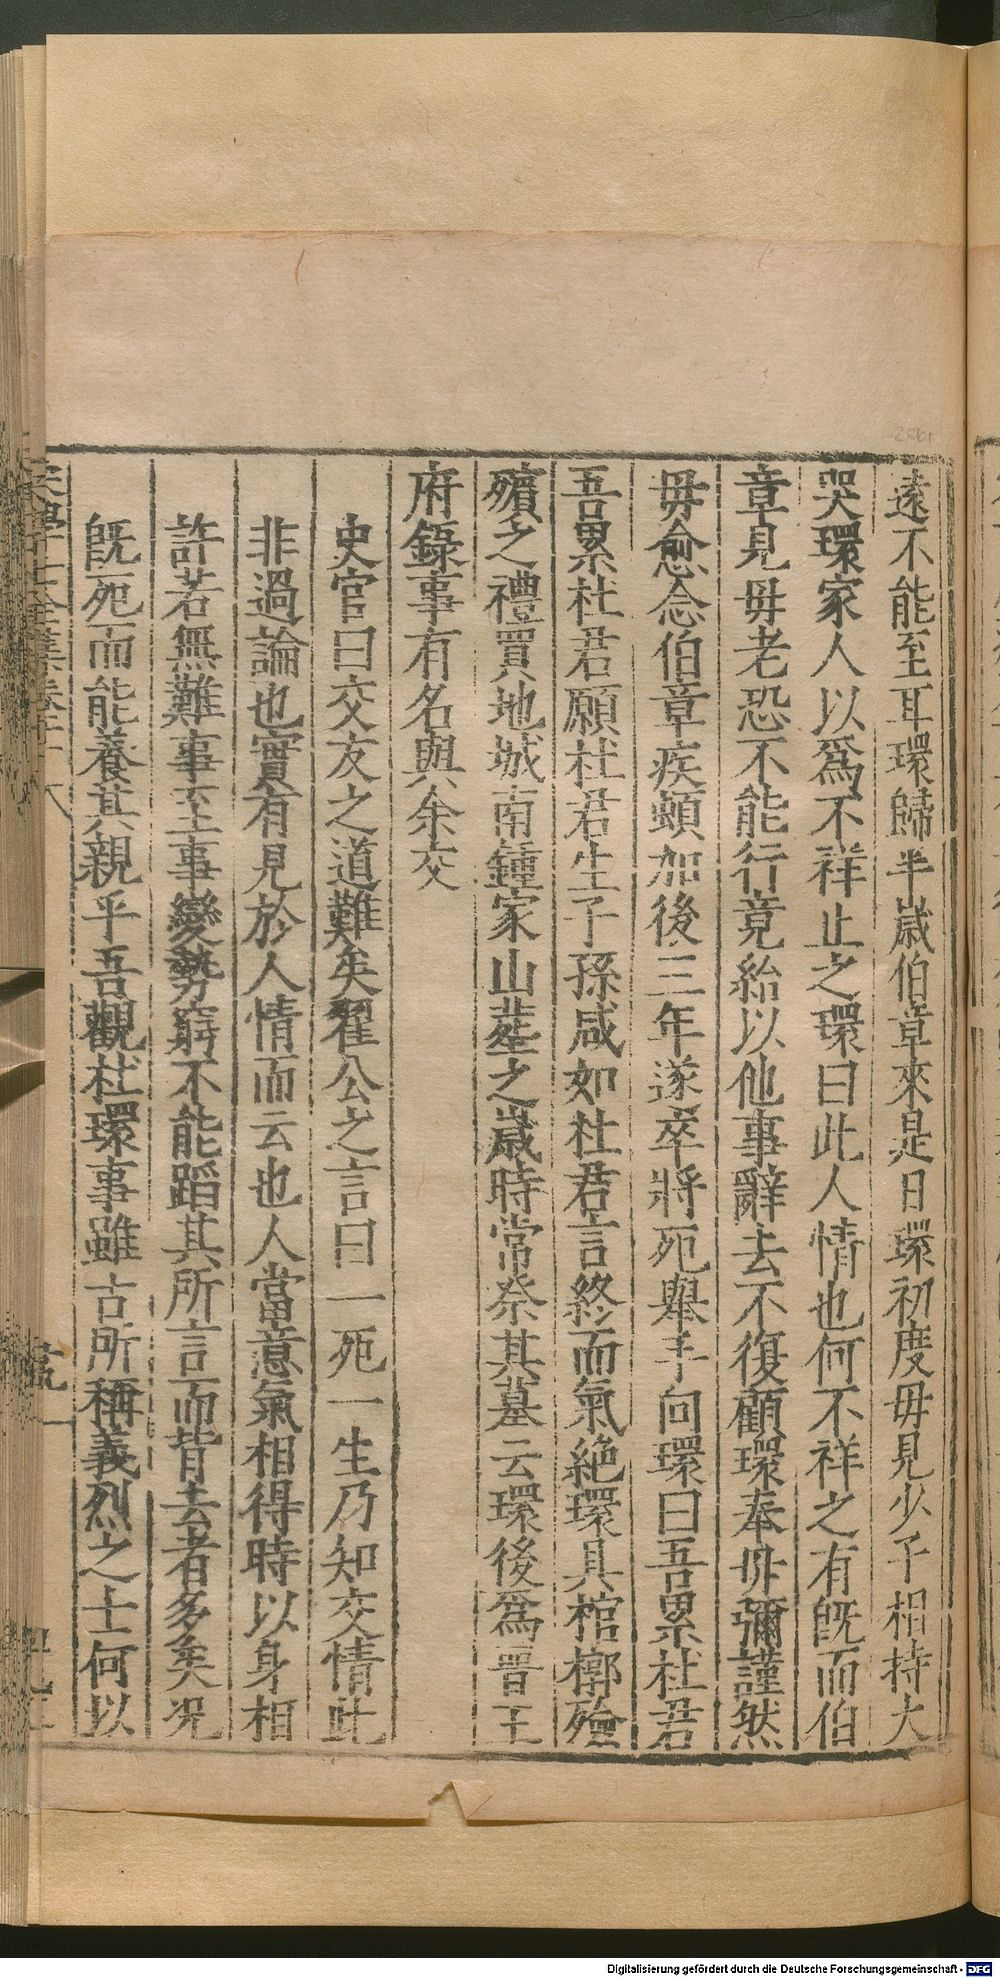 遠不能至耳環歸半歲伯章來是日環初度毋見少子相持大
哭環家人以爲不祥止之環曰此人情也何不祥之有既而伯
章見毋老恐不能行竟紿以他事辭去不復顧環奉毋彌謹然
毋愈念伯章疾頓加後三年遂卒將死舉手向環曰吾累杜君
吾累杜君願杜君生子孫咸如杜君言終而氣絶環具棺槨殮
殯之禮買地城南鍾家山塟之歲時常祭其墓云環後爲晋王
府錄事有名與余交
史官曰交友之道難矣翟公之言曰一死一生乃知交情此
非過論也實有見於人情而云也人當意氣相得時以身相
許若無難事至事變勢窮不能蹈其所言而背去者多矣况
既死而能養其親乎吾觀杜環事雖古所稱義烈之士何以
Digitalisierung gefördert durch die Deutsche Forschungsgemeinschaft - DFG